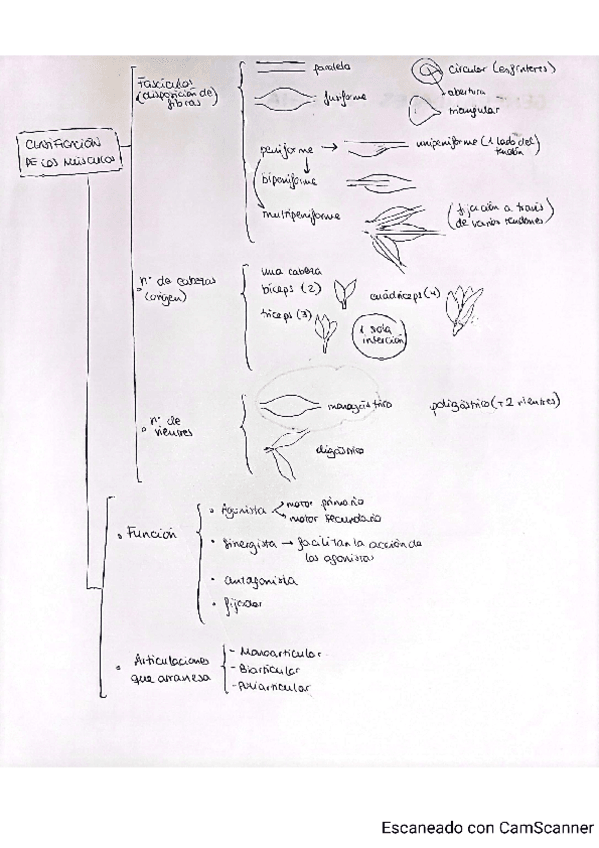 CLASIFICACIÓN
DE LOS MÚSCULOS
Fascículos
(disposición de)
fibras
paralelo
circular (esfínteres)
abertura
fusiforme
triangular
peniforme → unipeniforme (1 lado del
tendón)
bipeniforme
multipeniforme
(fijación a través
de varios tendones)
nº de cabezas
(origen)
una cabeza
bíceps (2)
cuádriceps (4)
tríceps (3)
1 sola
inserción
nº de
vientres
monogástrico
poligástrico (+2 vientres)
digástrico
Función
• Agonista
motor primario
motor secundario
• Sinergista → facilitan la acción de
los agonistas
• antagonista
• fijador
Articulaciones
que atraviesa
- Monoarticular
- Biarticular
- Poliarticular
Escaneado con CamScanner